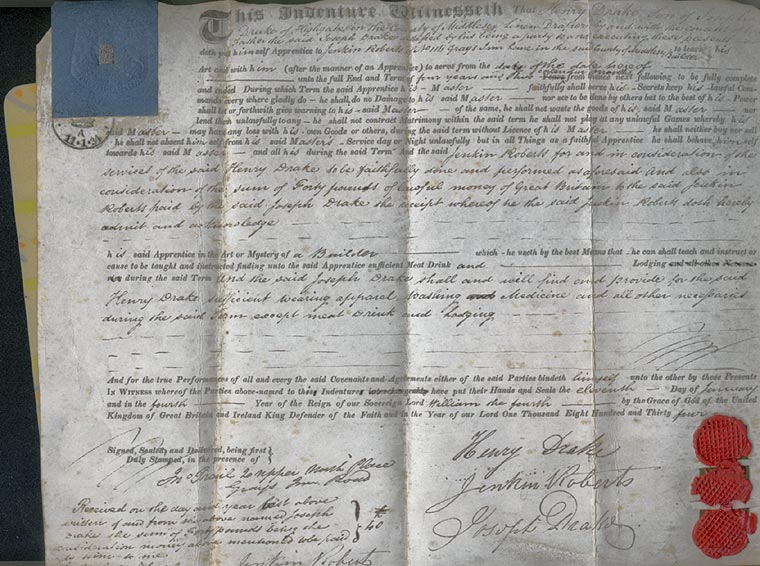 This Indenture Witnesseth That Henry Drake, Son of Joseph
Drake of Highgate in the County of Middlesex Linen Draper by and with the consent
Father the said Joseph Drake testified by his being a party to and executing these Presents
doth put himself Apprentice to Jenkin Roberts of Grays Inn Lane in the said County of Middlesex to learn his
Builder
Art and with him (after the manner of an Apprentice) to serve from the day of the date hereof
unto the full End and Term of four years and from thence next following to be fully complete
and ended During which Term the said Apprentice his Master faithfully shall serve his Secrets keep his lawful Com-
mands every where gladly do he shall do no Damage to his said Master nor see to be done by others but to the best of his Power
shall let or forthwith give warning to his said Master of the same, he shall not waste the goods of his said Master nor
lend them unlawfully to any he shall not contract Matrimony within the said term he shall not play at any unlawful Games whereby his
said Master may have any loss with his own Goods or others, during the said term without Licence of his Master he shall neither buy nor sell
he shall not absent himself from his said Master's Service day or Night unlawfully but in all Things as a faithful Apprentice he shall behave himself
towards his said Master and all his during the said Term And the said Jenkin Roberts for and in consideration of the
services of the said Henry Drake to be faithfully done and performed as aforesaid And also in
consideration of the sum of Forty pounds of lawful money of Great Britain to the said Jenkin
Roberts paid by the said Joseph Drake the receipt whereof he the said Jenkin Roberts doth hereby
admit and acknowledge
his said Apprentice in the Art or Mystery of a Builder which he useth by the best Means that he can shall teach and instruct or
cause to be taught and instructed finding unto the said Apprentice sufficient Meat Drink and Lodging and all other
during the said Term And the said Joseph Drake shall and will find and Provide for the said
Henry Drake sufficient wearing apparel Washing and Medicine and all other necessaries
during the said Term except meat Drink and Lodging
And for the true Performances of all and every the said Covenants and Agreements either of the said Parties bindeth himself unto the other by these Presents
IN WITNESS whereof the Parties above-named to these Indentures interchangeably have put their Hands and Seals the eleventh Day of January
and in the fourth Year of the Reign of our Sovereign Lord William the fourth by the Grace of God of the United
Kingdom of Great Britain and Ireland King Defender of the Faith and in the Year of our Lord One Thousand Eight Hundred and Thirty four
Signed, Sealed and Delivered, being first
Duly Stamped, in the presence of
20 Upper North Place
Grays Inn Road
Henry Drake
Jenkin Roberts
Joseph Drake
Received on the day and year last above
written of and from the above named Joseph
Drake the sum of Forty pounds being the
consideration money above mentioned to be paid
to me
£40
Jenkin Roberts